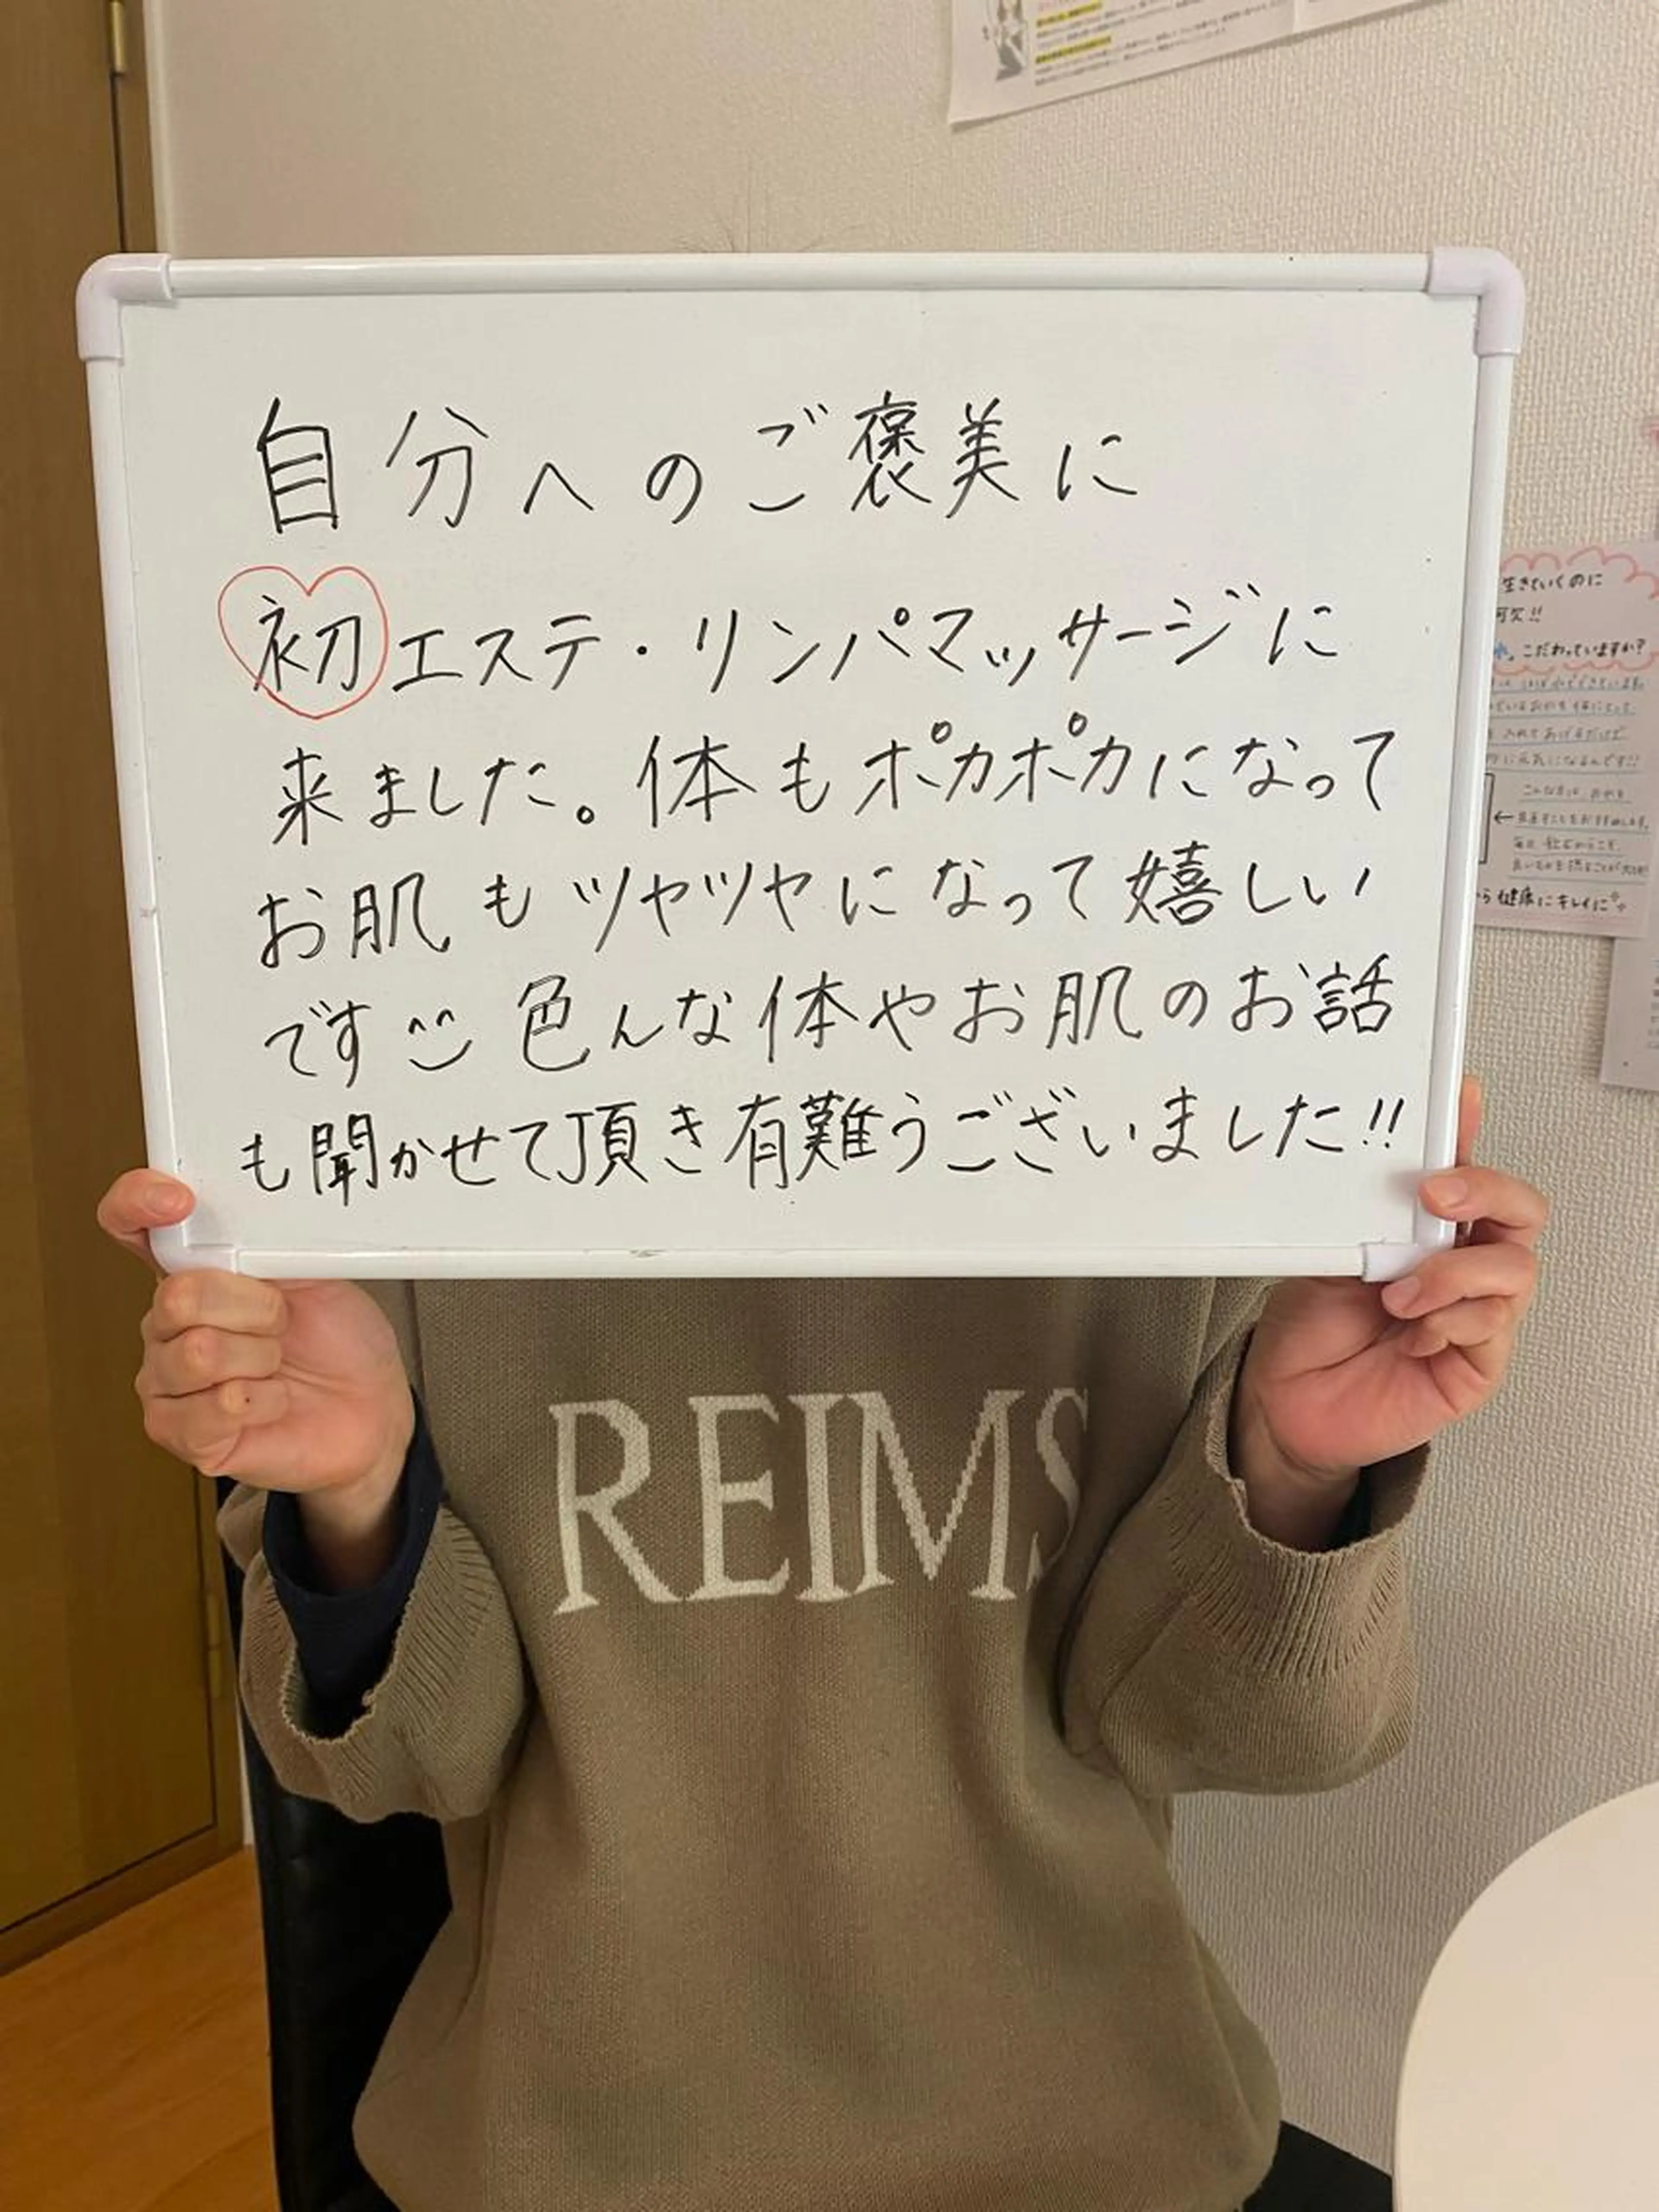 自分へのご褒美に
初エステ・リンパマッサージに
来ました。体もポカポカになって
お肌もツヤツヤになって嬉しい
です 色んな体やお肌のお話
も聞かせて頂き有難うございました!!
REIMS
生きていくのに
こだわっていますか?
健康にキレイに